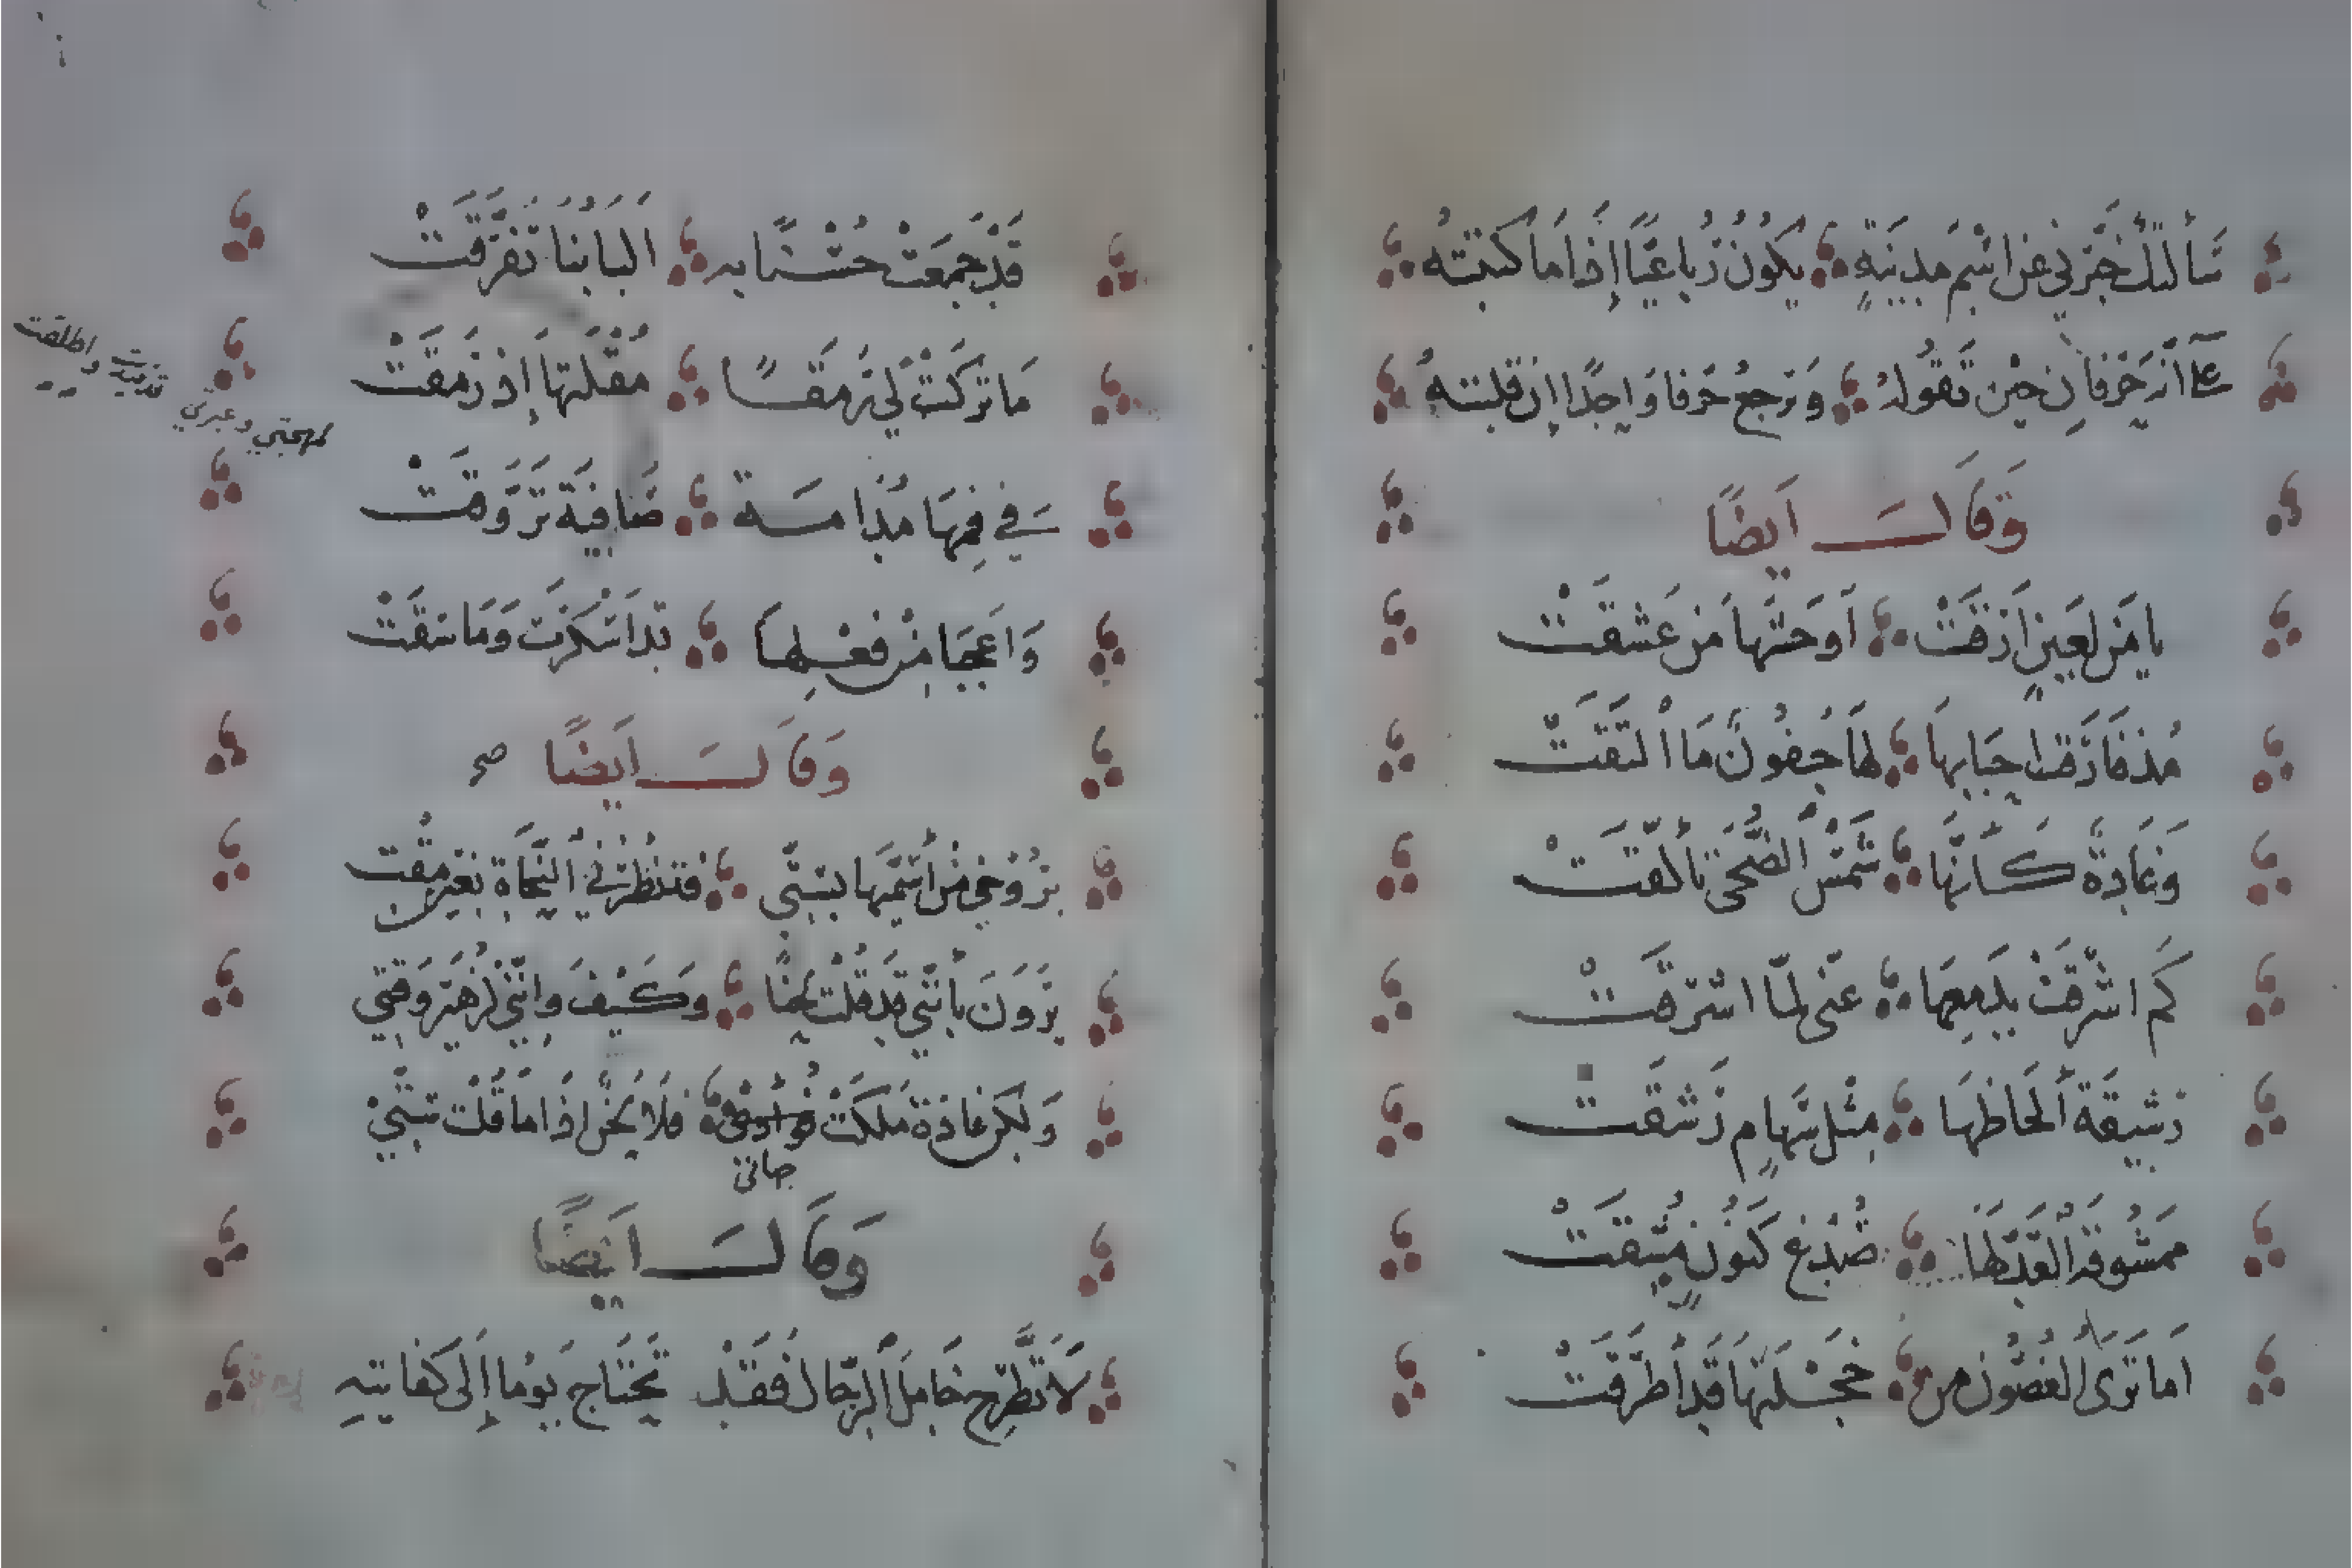 سألتك خبرني عن اسم مدينة يكون رباعيا إذا ما كتبته
على أنه حرفان حين تقوله وترجع حرفا واحدا إن قلبته
وقال أيضا
يا من لعين أرقت أوحشها من عشقت
مذ فارقت أحبابها لها جفون ما التقت
وغادة كأنها شمس الضحى تألقت
كم أشرقت بدمعها عيني لما أشرقت
رشيقة ألحاظها مثل سهام رشقت
ممشوقة القد لها صدغ كنون مشقت
أما ترى الغصون من خجلتها قد أطرقت
قد جمعت حسنا به ألبابنا تفرقت
ما تركت لي رمقا مقلتها إذ رمقت
لمهجتي وعبرتي قد قيدت وأطلقت
في فمها مدامة صافية تروقت
واعجبا من فعلها قد أسكرت وما سقت
وقال أيضا صح
بروحي من أسميها بستي فتنظرني النحاة بعين مقت
يرون بأنني قد قلت لحنا وكيف وإنني لزهير وقتي
ولكن غادة ملكت فؤادي فلا لحن إذا ما قلت ستي
جهاتي
وقال أيضا
لا تطرح خامل الرجال فقد تحتاج يوما إلى كفايته